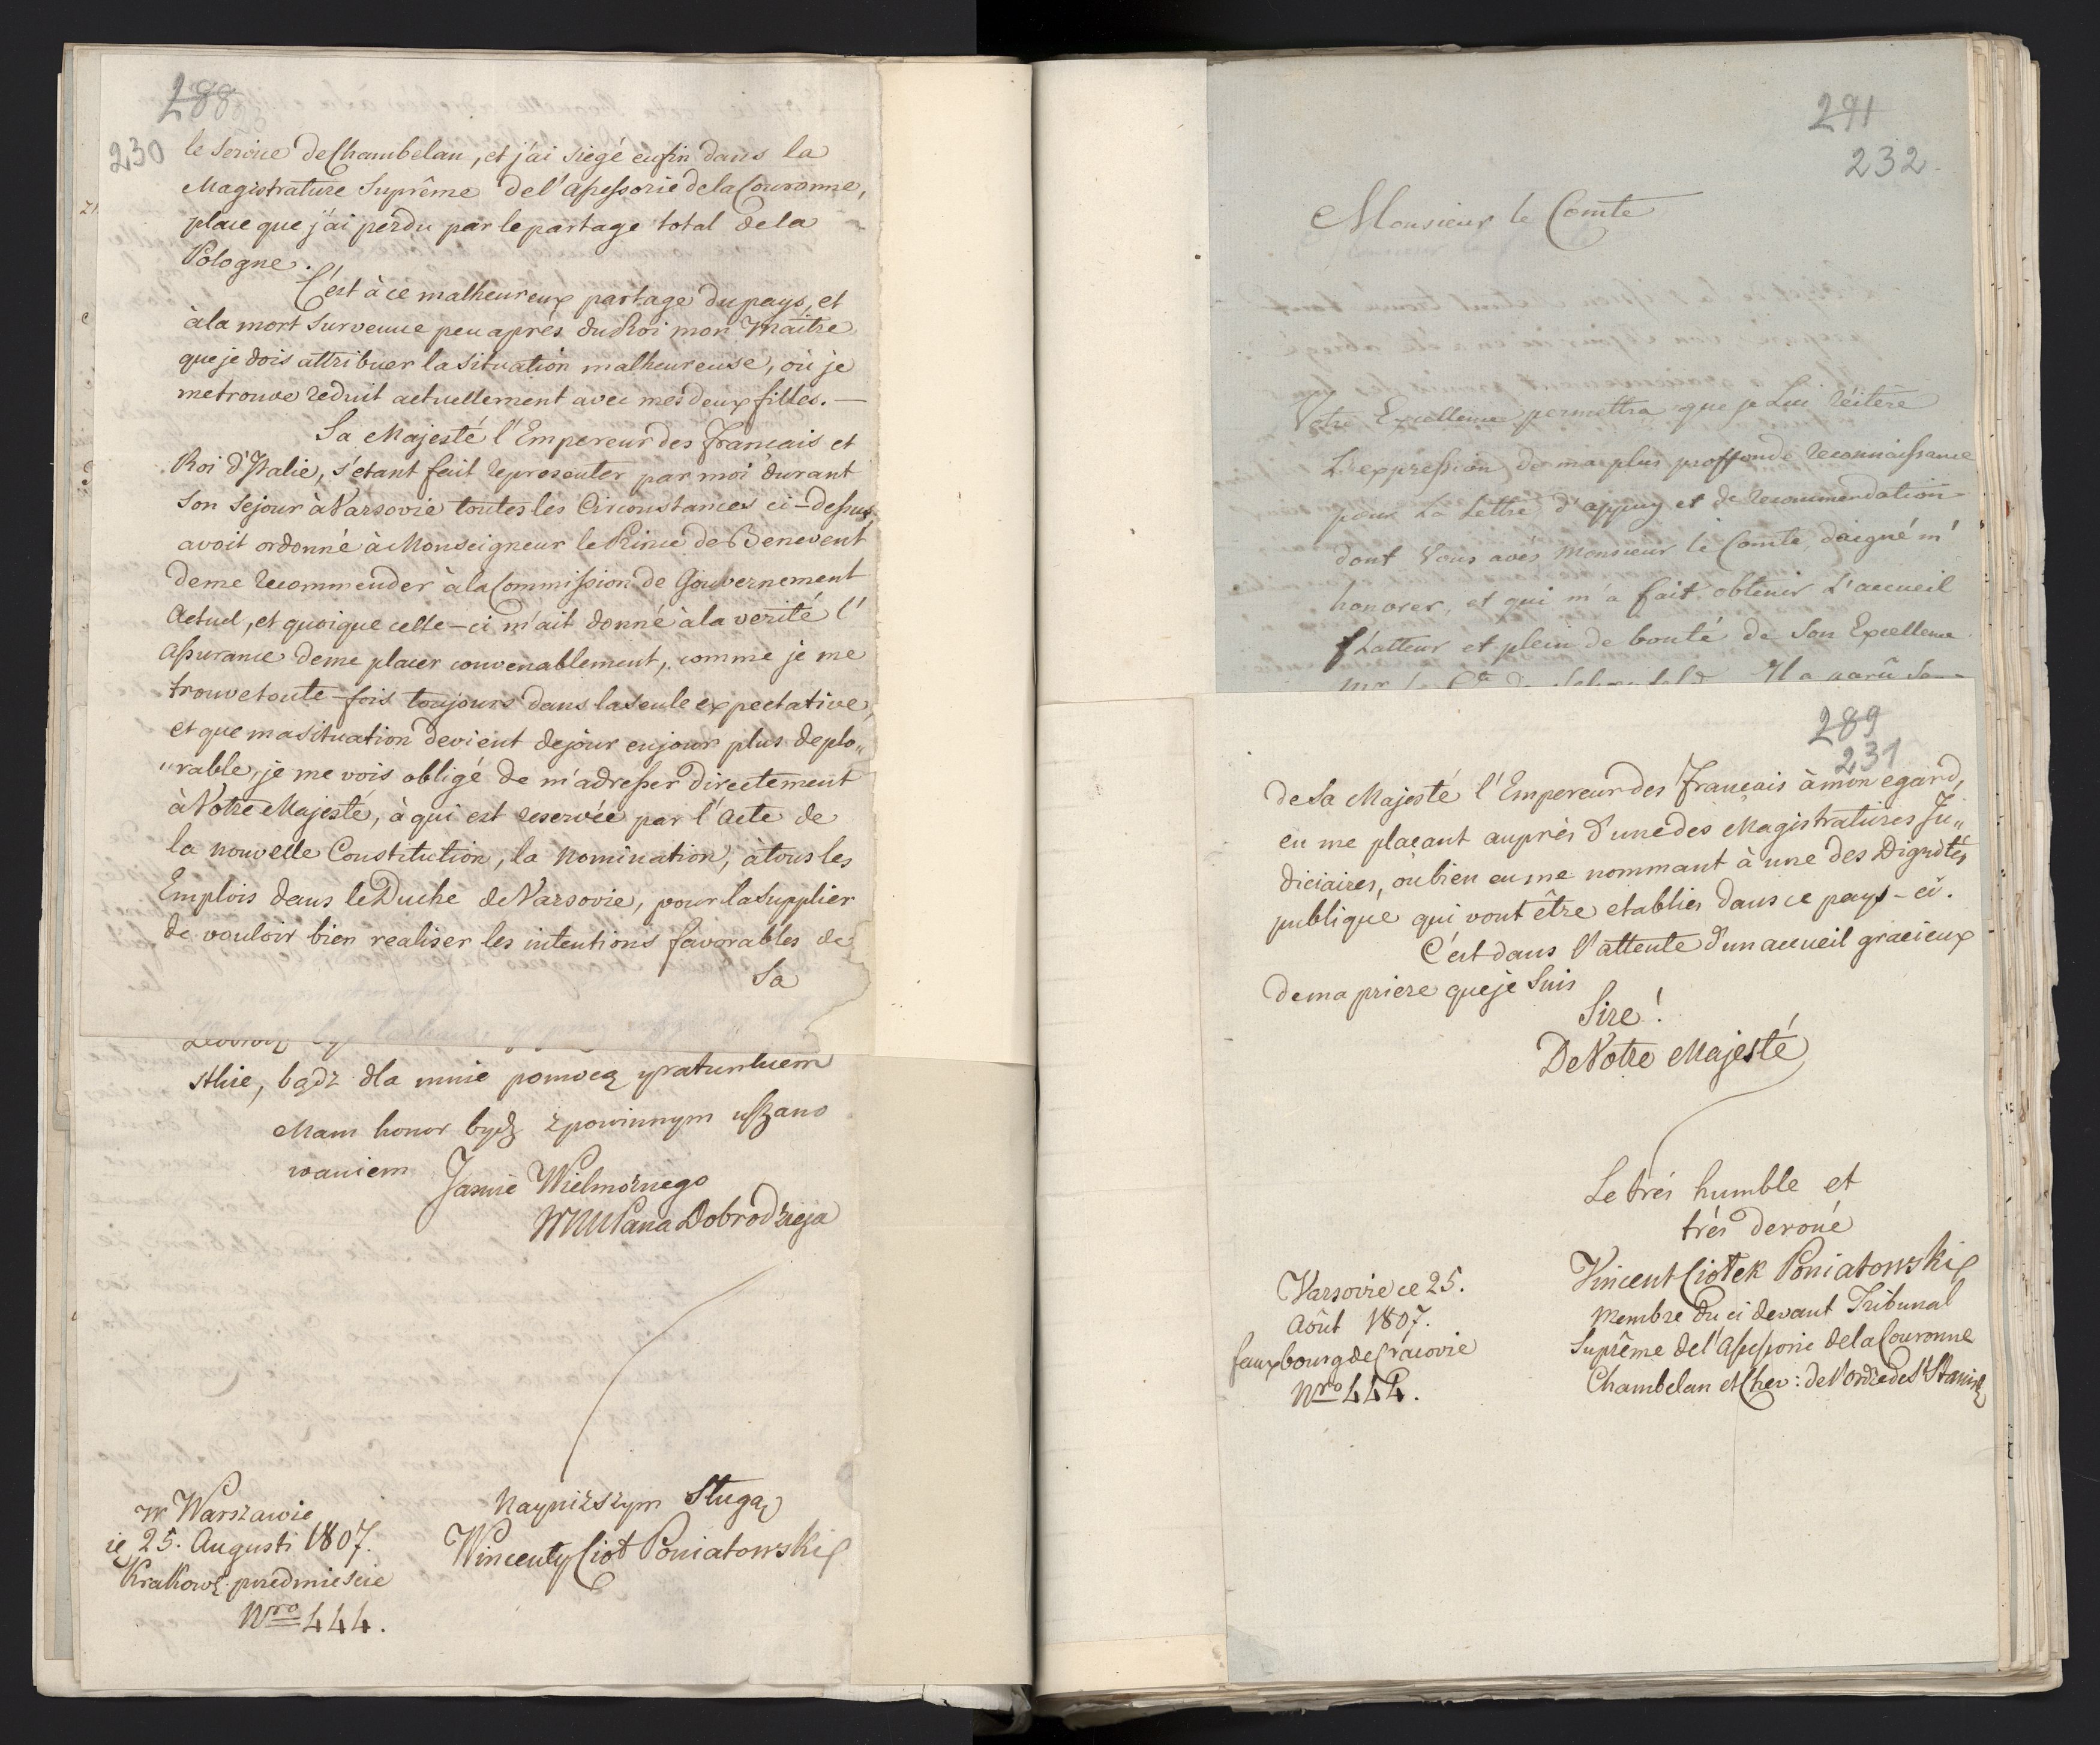 288
230
le Service de Chambelan, et j'ai siegé enfin dans la
Magistrature Suprême de l'Assessorie de la Couronne,
place que j'ai perdu par le partage total de la
Pologne.
C'est à ce malheureux partage du pays, et
à la mort survenue peu après du Roi mon Maitre
que je dois attribuer la situation malheureuse, où je
me trouve reduit actuellement avec mes deux filles. —
Sa Majesté l'Empereur des Francais et
Roi d'Italie, s'etant fait representer par moi durant
Son Sejour à Varsovie toutes les Circonstances ci-dessus,
avoit ordonné à Monseigneur le Prince de Benevent
de me recommender à la Commission de Gouvernement
Actuel, et quoique celle-ci m'ait donné à la verité l'
Assurance de me placer convenablement, comme je me
trouve toute-fois toujours dans la seule expectative,
et que ma situation devient de jour en jour plus deplo„
„rable, je me vois obligé de m'adresser directement
à Votre Majesté, à qui est reservée par l'Acte de
la nouvelle Constitution, la Nomination, à tous les
Emplois dans le Duche de Varsovie, pour la supplier
de vouloir bien realiser les intentions favorables de
Sa
skie, bądz dla mnie pomocą y ratunkiem
Mam honor bydz z powinnym uszano
waniem Jasnie Wielmożnego
WMM Pana Dobrodzieja
nayniższym Sługą
Wincenty Cioł Poniatowski
w Warszawie
25. Augusti 1807.
Krakows. przedmieście
Nro 444.
291
232.
Monsieur le Comte
Votre Excellence permettra que je Lui réitère
L'expression de ma plus proffonde reconnaissance
pour La Lettre d'appuy et de recommendation
dont Vous avés Monsieur le Comte, daigné m'
honorer, et qui m'a fait obtenir L'accueil
flatteur et plein de bonté de Son Excellence
Il a parû
289
231
de Sa Majesté l'Empereur des Francais à mon egard,
en me plaçant auprès d'une des Magistratures Ju„
diciaires, où bien en me nommant à une des Dignités
publique qui vont être etablies dans ce pays-ci.
C'est dans l'attente d'un accueil gracieux
de ma priere que je Suis
Sire!
De Votre Majesté
Le trés humble et
trés devoué
Vincent Ciołek Poniatowski
Membre du ci devant Tribunal
Suprême de l'Assessorie de la Couronne
Chambelan et Chev: de l'ordre de St Stanisl
Varsovie ce 25.
Aôut 1807.
fauxbourg de Cracovie
Nro 444.